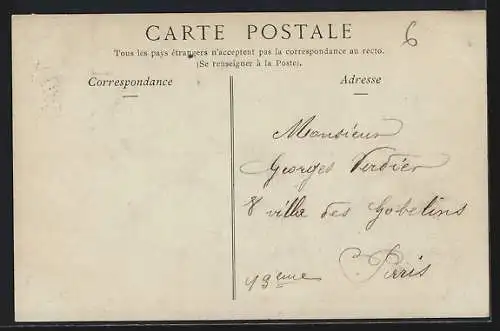 CARTE POSTALE
6
Tous les pays étrangers n'acceptent pas la correspondance au recto.
(Se renseigner à la Poste).
Correspondance
Adresse
Monsieur
Georges Verdier
8 villa des Gobelins
Paris
13eme